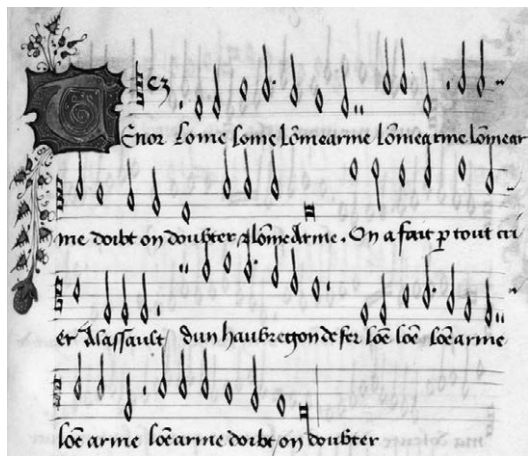 TEnor Lome lome lõmearme lõmearme lõmear
me doibt on doubter lõmearme . On a fait p tout cri
er Alassault dun haubregon de fer lõe lõe lõe arme
lõe arme lõe arme doibt on doubter